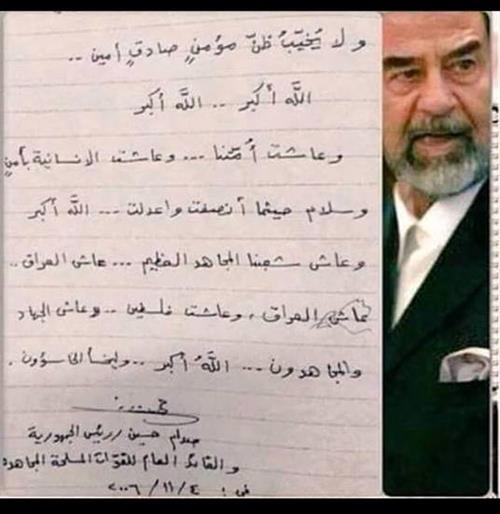 ولا يُخيّبُ ظنّ مؤمنٍ صادقٍ أمين ..
اللّه أكبر .. اللّه أكبر
وعاشت أُمّتنا ... وعاشت الإنسانية بأمنٍ
وسلام حيثما أنصفت واعدلت ... اللّه أكبر
وعاش شعبنا المجاهد العظيم ... عاش العراق ..
عاش العراق ، وعاشت فلسطين .. وعاش الجهاد
والمجاهدون ... اللّهُ أكبر .. وليخسأ الخاسؤون .
صدام حسين رئيس الجمهورية
والقائد العام للقوات المسلحة المجاهدة
في : ٤ / ١١ / ٢٠٠٦